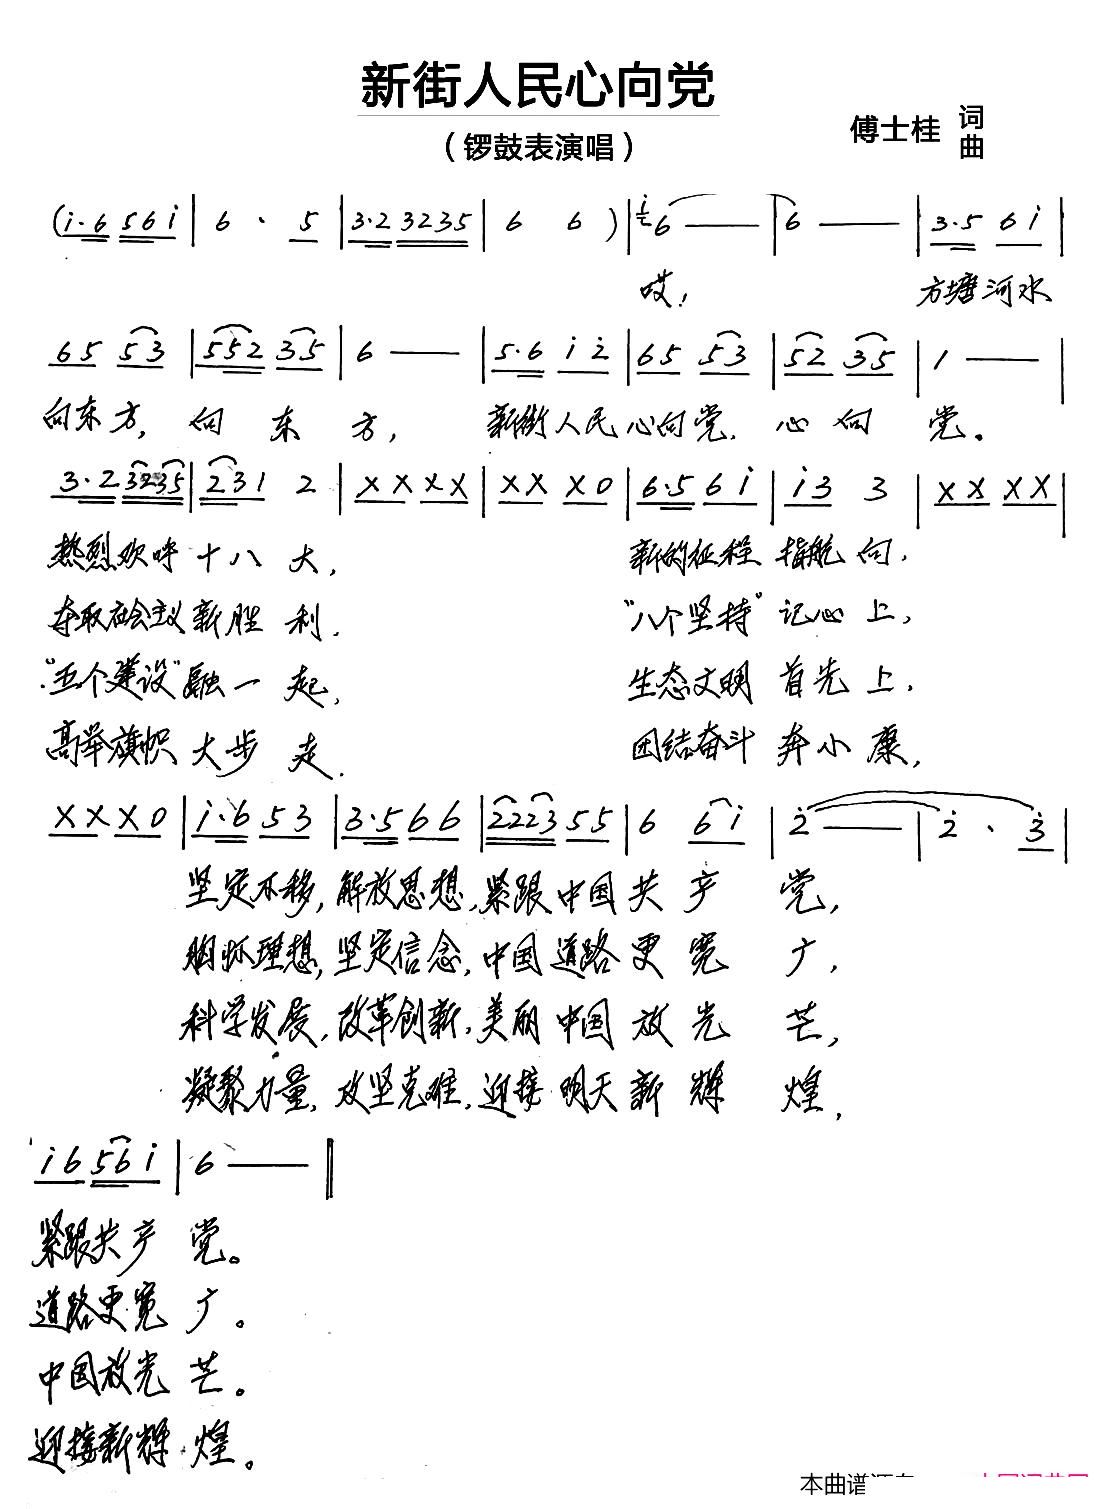 新街人民心向党
（锣鼓表演唱）
傅士桂 词
曲
(i·6 5 6 i | 6 · 5 | 3·2 3 2 3 5 | 6 6 ) | i 6 — | 6 — | 3·5 6 i |
哎！ 方塘河水
6 5 5 3 | 5 5 2 3 5 | 6 — | 5·6 i 2 | 6 5 5 3 | 5 2 3 5 | 1 — |
向东方，向 东 方， 新街人民心向党，心 向 党。
3·2 3 2 3 5 | 2 3 1 2 | X X X X | X X X 0 | 6·5 6 i | i 3 3 | X X X X |
热烈欢呼十八大， 新的征程指航向，
夺取社会主义新胜利， “八个坚持”记心上，
“五个建设”融一起， 生态文明首先上，
高举旗帜大步走， 团结奋斗奔小康，
X X X 0 | i·6 5 3 | 3·5 6 6 | 2 2 2 3 5 5 | 6 6 i | 2 — | 2 · 3 |
坚定不移，解放思想，紧跟中国共产党，
胸怀理想，坚定信念，中国道路更宽广，
科学发展，改革创新，美丽中国放光芒，
凝聚力量，攻坚克难，迎接明天新辉煌，
i 6 5 6 i | 6 — ‖
紧跟共产党。
道路更宽广。
中国放光芒。
迎接新辉煌。
本曲谱源自